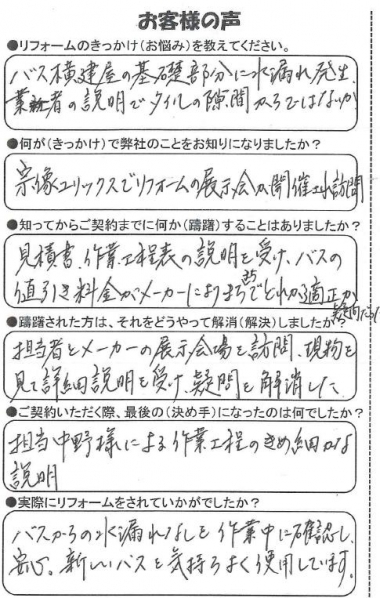 お客様の声
●リフォームのきっかけ(お悩み)を教えてください。
バス横建屋の基礎部分に水漏れ発生
業者の説明でタイルの隙間からではないか
●何が(きっかけ)で弊社のことをお知りになりましたか?
宗像ユリックスでリフォームの展示会が開催され訪問
●知ってからご契約までに何か(躊躇)することはありましたか?
見積書、作業工程表の説明を受け、バスの
値引き料金がメーカーによりまちまちでどれが適正か
疑問だった
●躊躇された方は、それをどうやって解消(解決)しましたか?
担当者とメーカーの展示会場を訪問、現物を
見て詳細説明を受け、疑問を解消した
●ご契約いただく際、最後の(決め手)になったのは何でしたか?
担当中野様による作業工程のきめ細かな
説明
●実際にリフォームをされていかがでしたか?
バスからの水漏れなしを作業中に確認し、
安心。新しいバスを気持ちよく使用しています。